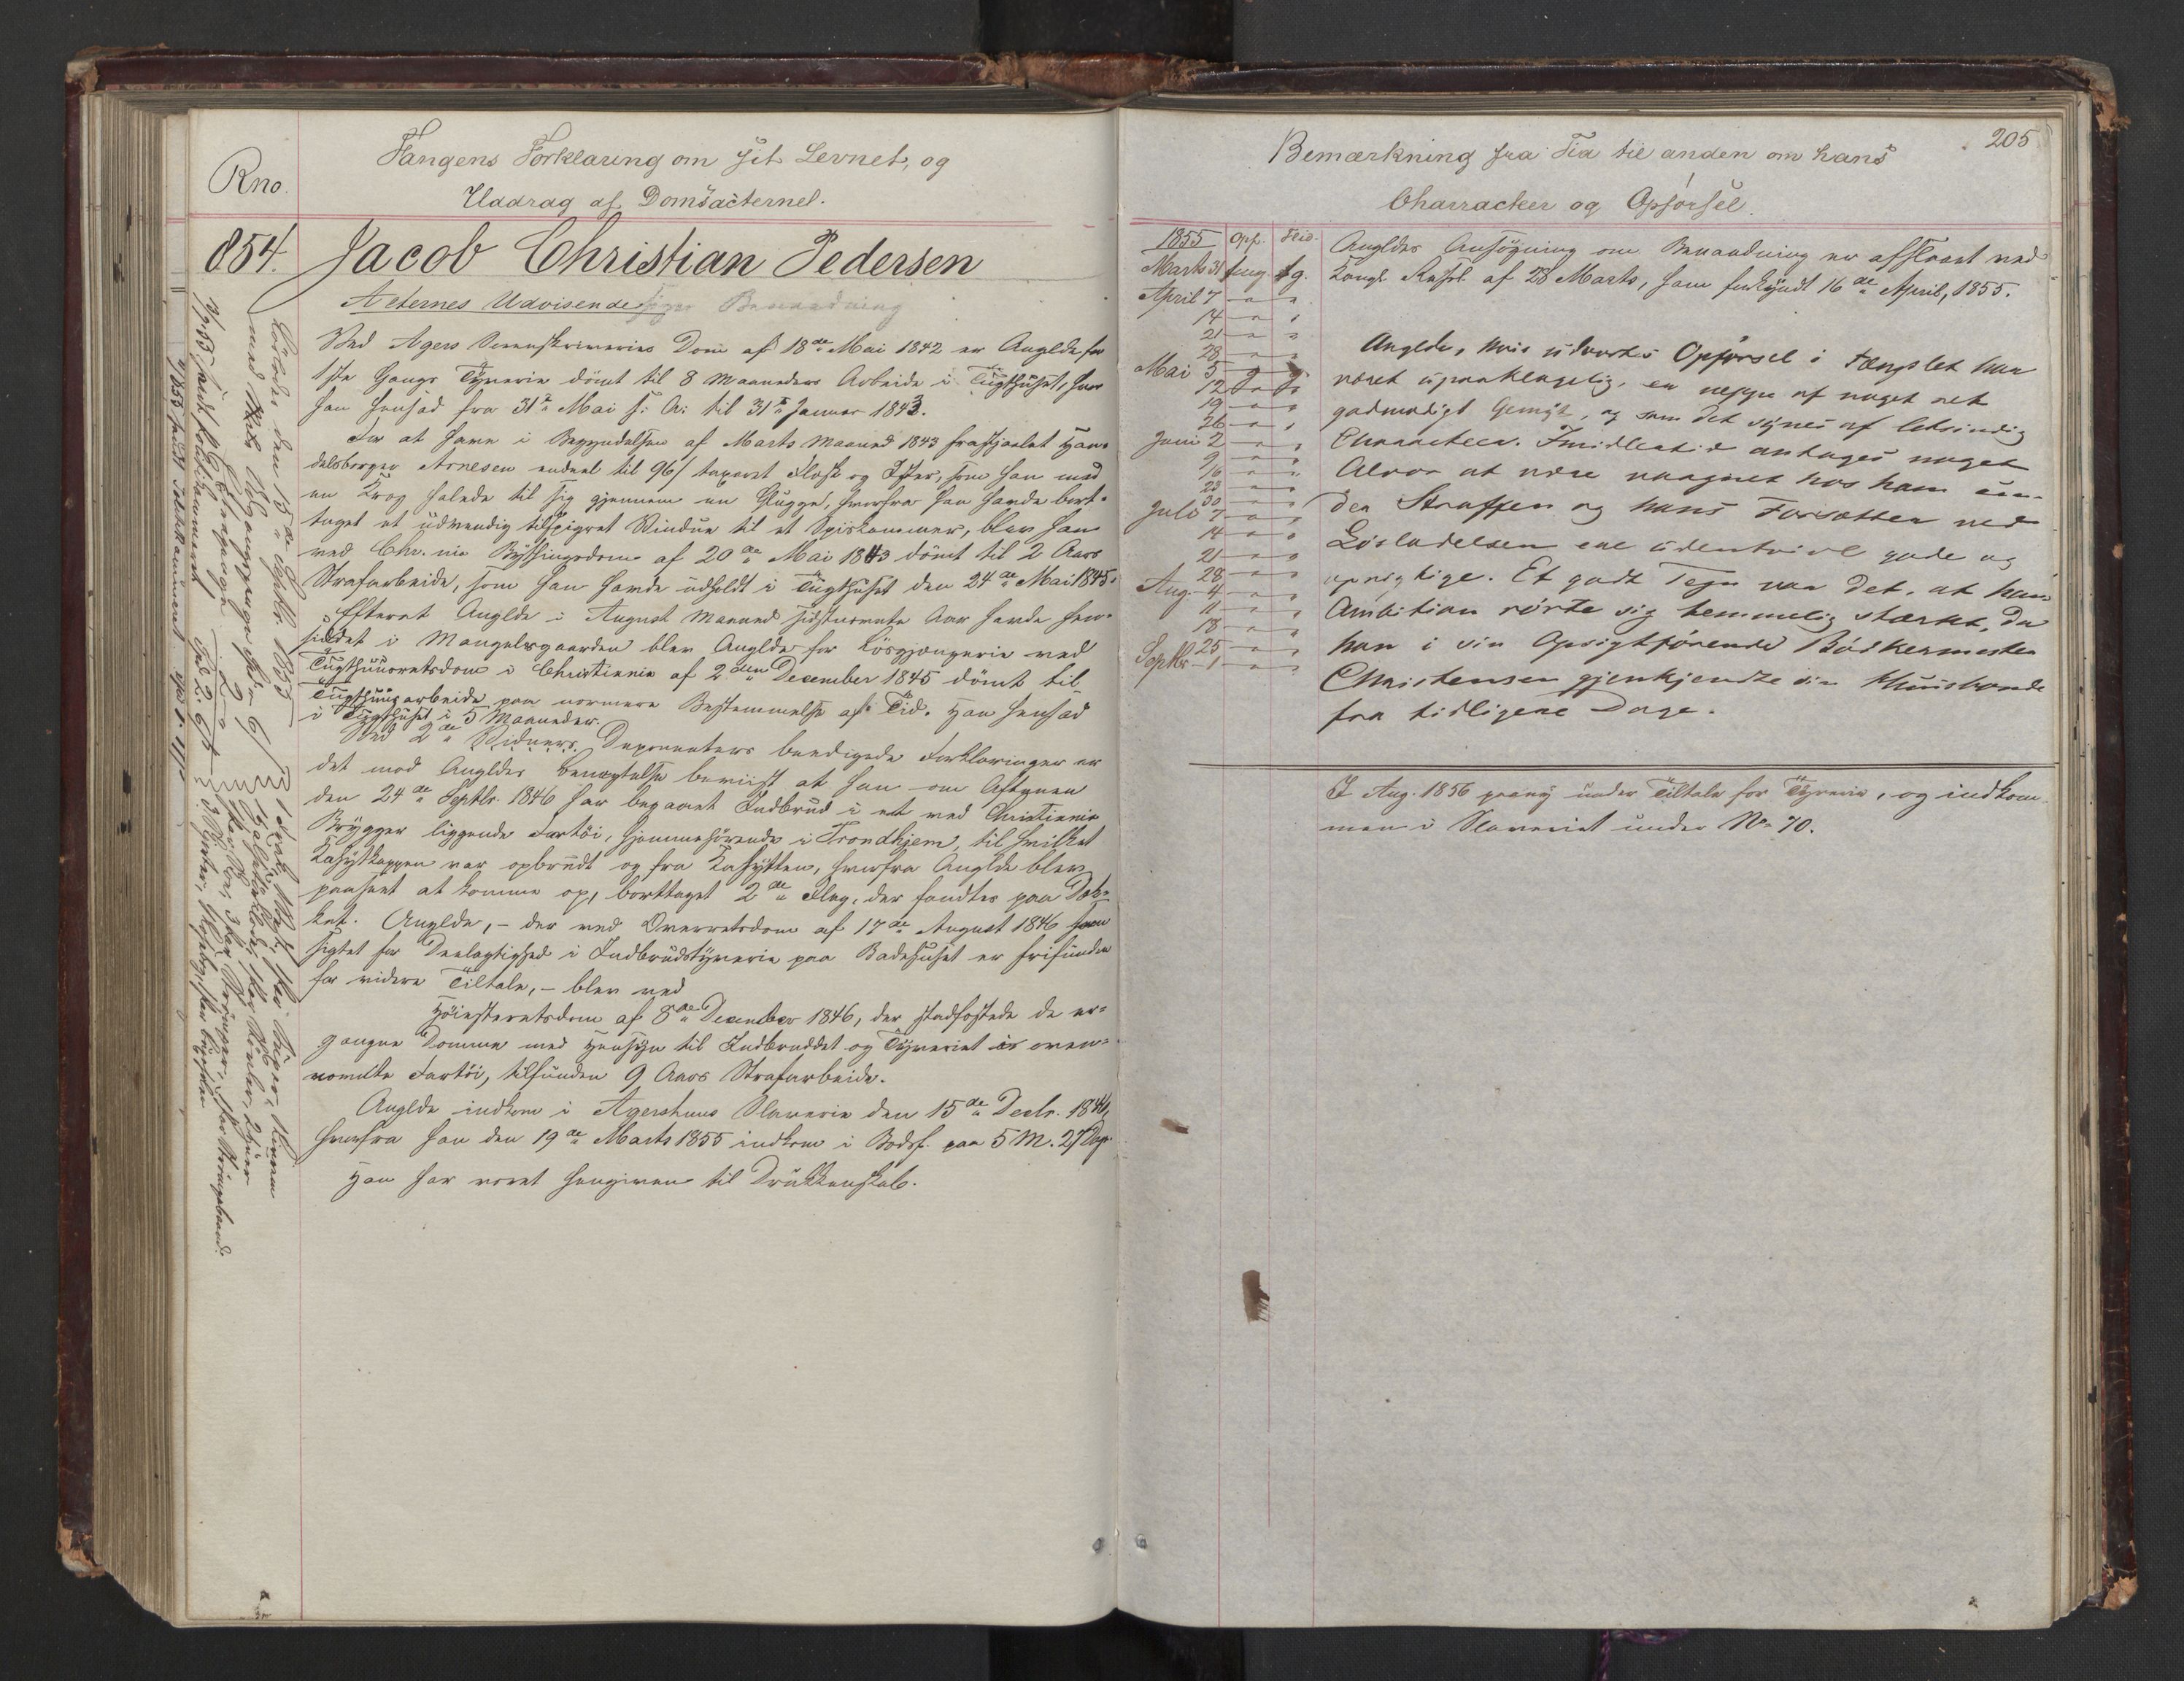 Rno.
Fangens Forklaring om sit Levnet, og
Uddrag af Domsacterne.
854. Jacob Christian Pedersen
Acternes Udvisende
Ved Agers Sorenskriveries Dom af 18de Mai 1842 er Anglde for
1ste Gangs Tyverie dömt til 8 Maaneders Arbeide i Tugthuset, hvor
han hensad fra 31te Mai s: A: til 31te Januar 1843.
For at have i Begyndelsen af Marts Maaned 1843 frastjaalet Han-
delsborger Arnesen endeel til 96/ taxeret Flesk og Ister, som han med
en Krog halede til sig gjennem en Glugge, hvorfra han havde bort-
taget et udvendig tilspigret Vindue til et Spiskammer, blev han
ved Chr.nia Bythingsdom af 20de Mai 1843 dömt til 2 Aars
Strafarbeide, som han havde udholdt i Tugthuset den 24de Mai 1845.
Efterat Anglde i August Maaned sidstnævnte Aar havde hen-
siddet i Mangelsgaarden blev Anglde for Lösgjængerie ved
Tugthuusretsdom i Christiania af 2den December 1845 dömt til
Tugthuusarbeide paa nærmere Bestemmelse af Tid. Han hensad
i Tugthuset i 5 Maaneder.
Ved 2de Vidners Deponenters beedigede Forklaringer er
det mod Angldes Benægtelse beviist at han om Aftenen
den 24de Septbr. 1846 har begaaet Indbrud i et ved Christiania
Brygger liggende Fartöi, hjemmehörende i Trondhjem, til hvilket
Kahytkappen var opbrudt og fra Kahytten, hvorfra Anglde blev
paaseet at komme op, borttaget 2de Flag, der fandtes paa Dæk-
ket. Anglde, – der ved Overretsdom af 17de August 1846 som
sigtet for Deelagtighed i Indbrudstyverie paa Badehuset er frifunden
for videre Tiltale, – blev ved
Höiesteretsdom af 8de December 1846, der stadfæstede de er-
gangne Domme med Hensyn til Indbruddet og Tyveriet i oven-
nævnte Fartöi, tilfunden 9 Aars Strafarbeide.
Anglde indkom i Agershuus Slaverie den 15de Decbr. 1846,
hvorfra han den 19de Marts 1855 indkom i Bodsf. paa 5 M. 27 Dage.
Han har været hengiven til Drukkenskab.
Löslades den 15de Septbr. 1855
205
Bemærkning fra Tid til anden om hans
Charracter og Opförsel.
1855 Opf. Flid.
Marts 31 fmg. fg.
April 7 " "
14 " "
21 " "
28 " "
Mai 5 g g.
12 " "
19 " "
26 " "
Juni 2 " "
9 " "
16 " "
23 " "
30 " "
Juli 7 " "
14 " "
21 " "
28 " "
Aug. 4 " "
11 " "
18 " "
25 " "
Septbr. 1 " "
Angldes Ansögning om Benaadning er afslaaet ved
Kongl. Resol. af 28 Marts, ham forkyndt 16de April, 1855.
Anglde, hvis udvortes Opförsel i Fængslet har
været upaaklagelig, er neppe af noget ret
godmodigt Gemyt, og som det synes af letsindig
Characteer. Imidlertid antages noget
Alvor at være vaagnet hos ham un-
der Straffen og hans Forsætter ved
Lösladelsen ere udentvivl gode og
oprigtige. Et godt Tegn var det, at hans
Ambition rörte sig temmelig stærkt, da
han i sin Opsigtförende Bödkermester
Christensen gjenkjendte sin Huusbonde
fra tidligere Dage.
I Aug. 1856 paany under Tiltale for Tyverie, og indkom-
men i Slaveriet under No 70.